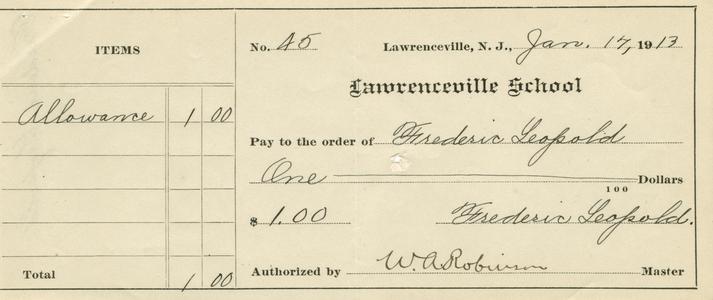 ITEMS
Allowance 1 00
Total 1 00
No. 45 Lawrenceville, N. J., Jan. 17, 1913
Lawrenceville School
Pay to the order of Frederic Leopold
One Dollars
100
$ 1.00 Frederic Leopold.
Authorized by W. A. Robinson Master